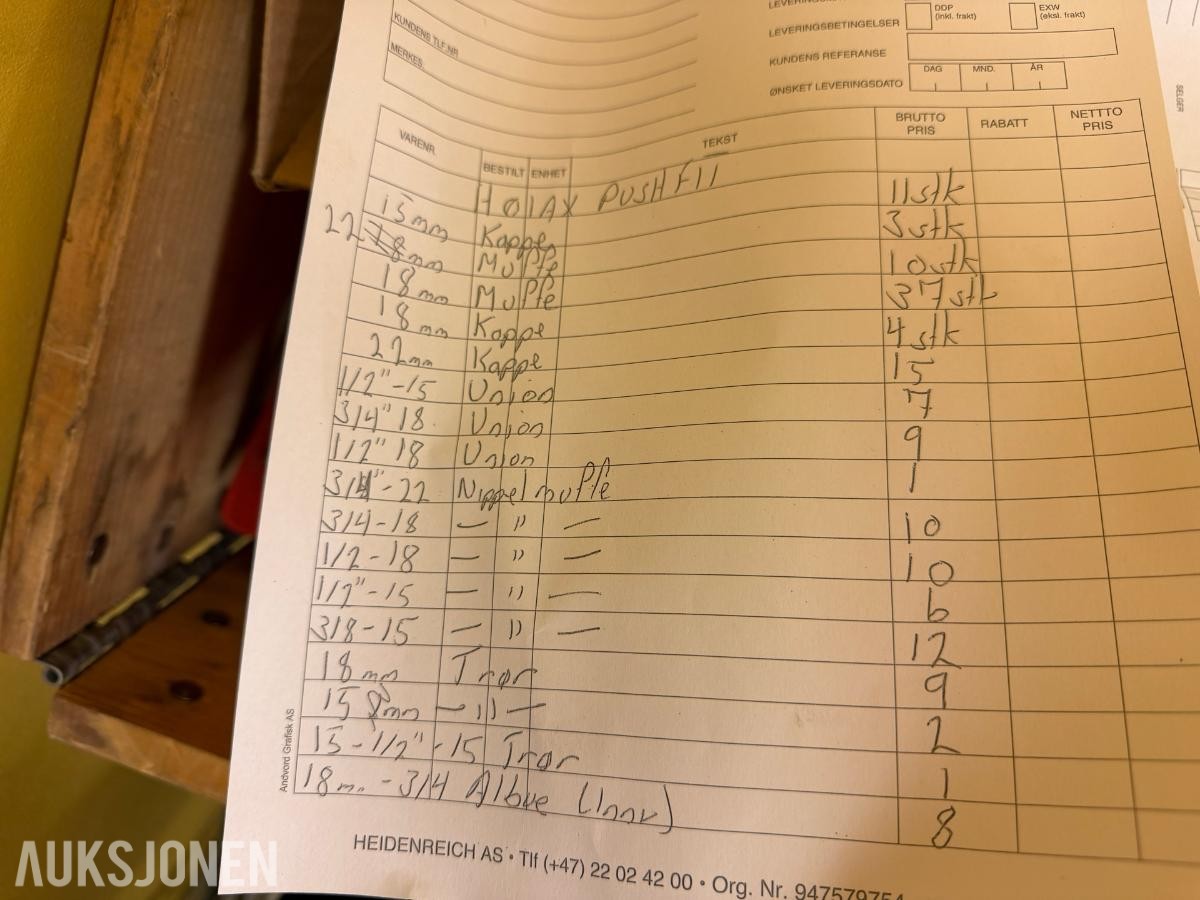 DDP
(inkl. frakt)
EXW
(eksl. frakt)
LEVERINGSBETINGELSER
KUNDENS TLF.NR
KUNDENS REFERANSE
MERKES.
DAG MND. ÅR
ØNSKET LEVERINGSDATO
SELGER
VARENR. BESTILT ENHET TEKST BRUTTO PRIS RABATT NETTTO PRIS
PUSHFIT
15mm Kappe 11stk
22 18mm Muffe 3stk
18mm Muffe 10stk
18mm Kappe 37stk
22mm Kappe 4stk
1/2"-15 Union 15
3/4" 18 Union 7
1/2" 18 Union 9
3/4"-22 Nippelmuffe 1
3/4-18 — " — 10
1/2-18 — " — 10
1/2"-15 — " — 6
3/8-15 — " — 12
18mm Trør 9
15 mm — " — 2
15-1/2"-15 Trør 1
18m -3/4 Albue (Innv) 8
Andvord Grafisk AS
HEIDENREICH AS • Tlf (+47) 22 02 42 00 • Org. Nr. 947579754
AUKSJONEN